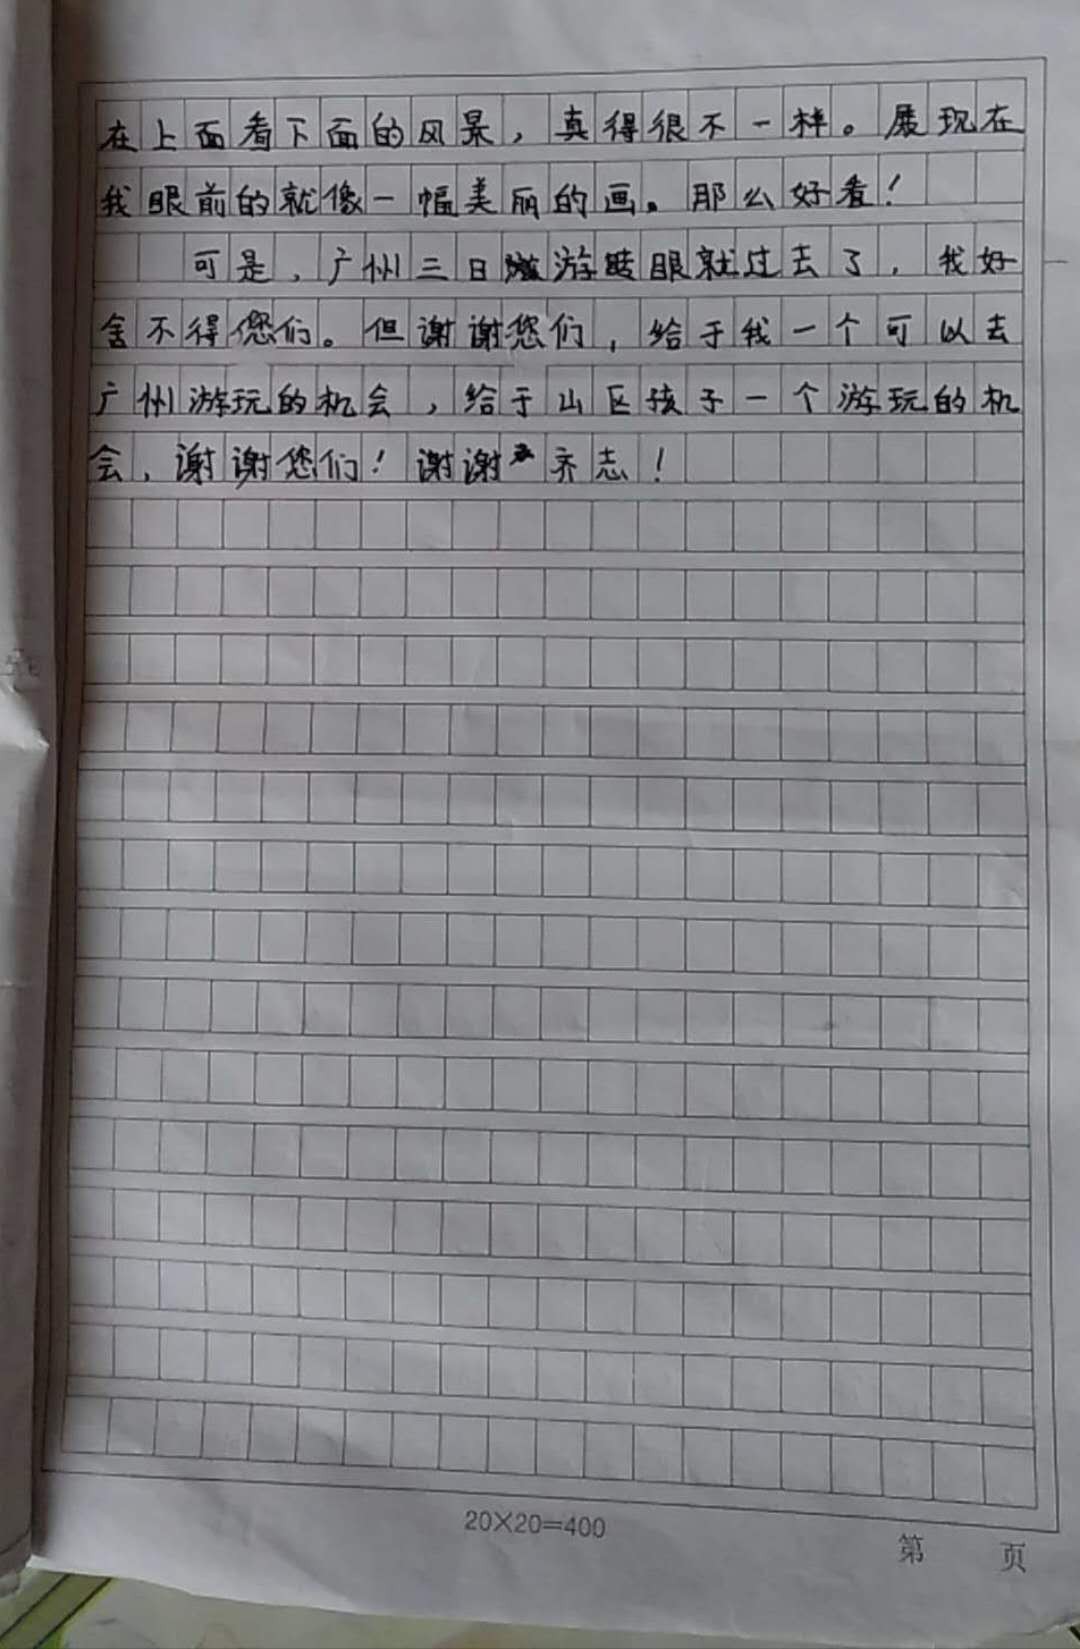 在上面看下面的风景，真得很不一样。展现在
我眼前的就像一幅美丽的画。那么好看！
可是，广州三日游眨眼就过去了，我好
舍不得您们。但谢谢您们，给于我一个可以去
广州游玩的机会，给于山区孩子一个游玩的机
会，谢谢您们！谢谢齐志！
20×20=400
第 页